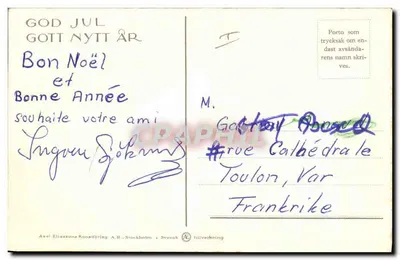 GOD JUL
GOTT NYTT ÅR
Bon Noël
et
Bonne Année
souhaite votre ami
Ingvar
Porto som
trycksak om en-
dast avsända-
rens namn skri-
ves.
M.
rue Cathédrale
Toulon, Var
Frankrike
Axel Eliassons Konstförlag A.B., Stockholm